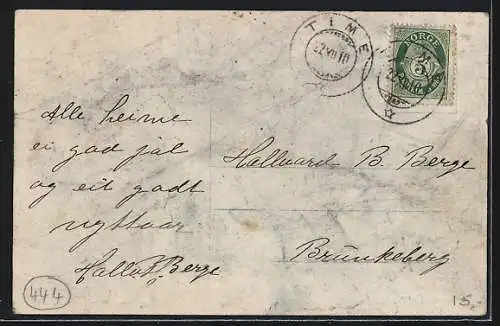 TIME
22 XII 10
NORGE
5
Alle heime
ei god jol
og eit godt
nyttaar
Hallv. B. Berge
Hallvard B. Berge
Brunkeberg
444
15.-